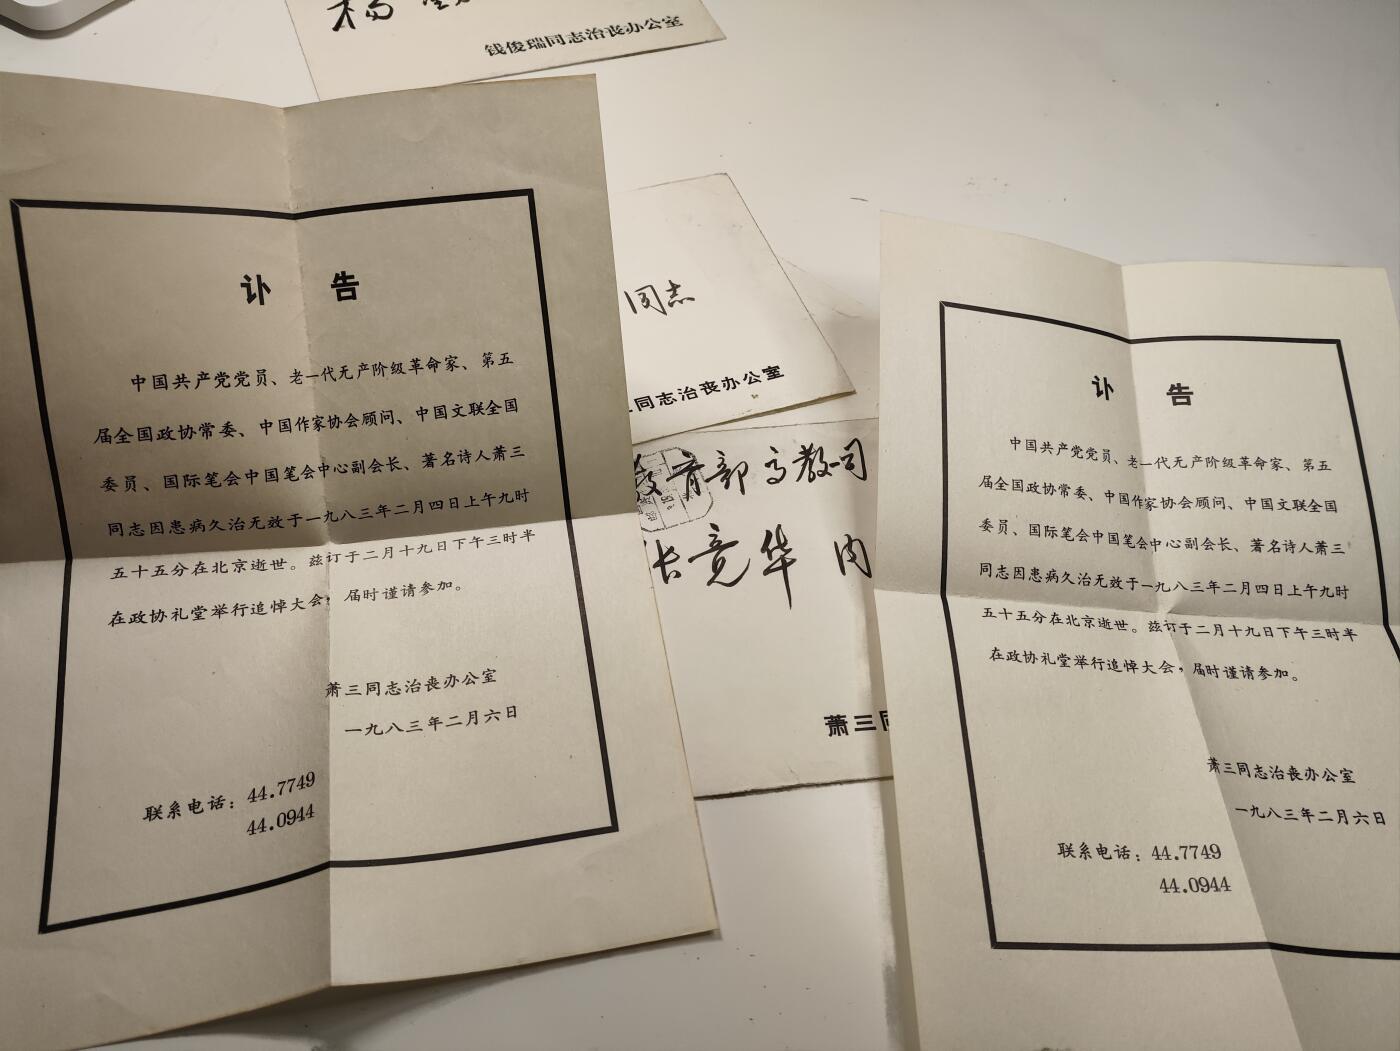 杨
钱俊瑞同志治丧办公室
讣 告
中国共产党党员、老一代无产阶级革命家、第五
届全国政协常委、中国作家协会顾问、中国文联全国
委员、国际笔会中国笔会中心副会长、著名诗人萧三
同志因患病久治无效于一九八三年二月四日上午九时
五十五分在北京逝世。兹订于二月十九日下午三时半
在政协礼堂举行追悼大会，届时谨请参加。
萧三同志治丧办公室
一九八三年二月六日
联系电话：44.7749
44.0944
同志
同志治丧办公室
教育部高教司
张竟华 内
萧三同
讣 告
中国共产党党员、老一代无产阶级革命家、第五
届全国政协常委、中国作家协会顾问、中国文联全国
委员、国际笔会中国笔会中心副会长、著名诗人萧三
同志因患病久治无效于一九八三年二月四日上午九时
五十五分在北京逝世。兹订于二月十九日下午三时半
在政协礼堂举行追悼大会，届时谨请参加。
萧三同志治丧办公室
一九八三年二月六日
联系电话：44.7749
44.0944